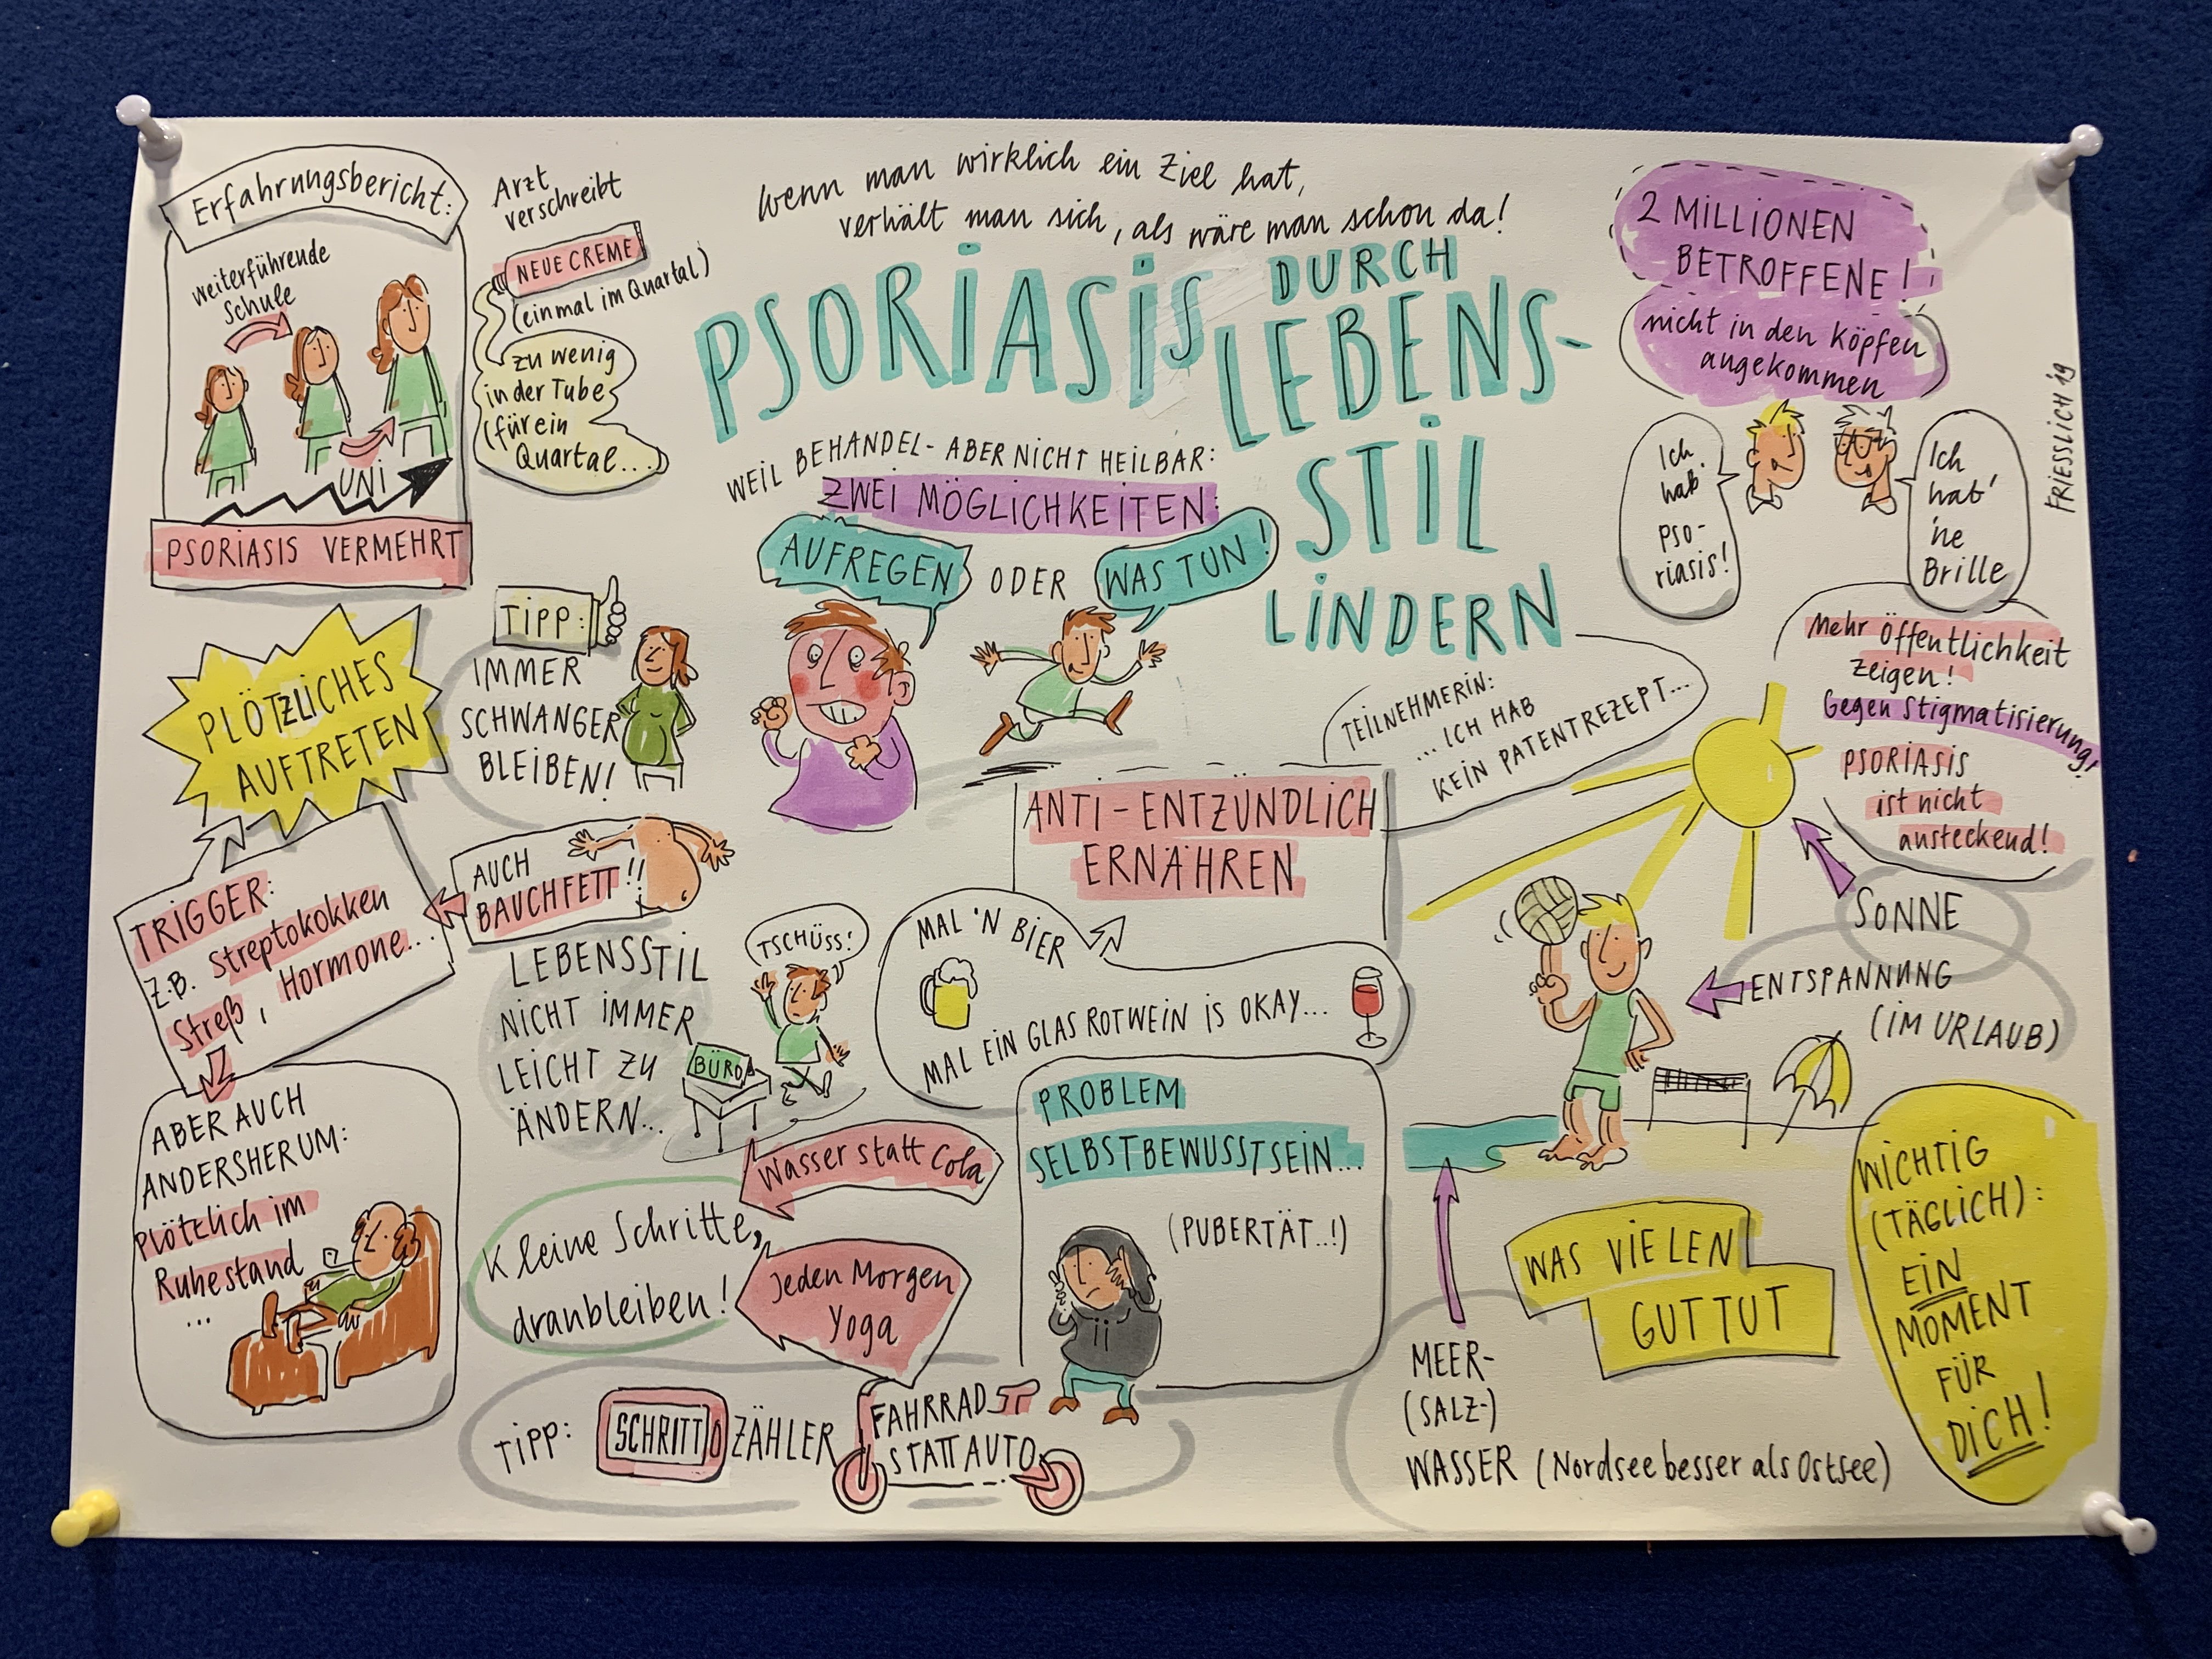 Erfahrungsbericht:
weiterführende
Schule
UNI
PSORIASIS VERMEHRT
Arzt
verschreibt
NEUE CREME
(einmal im Quartal)
zu wenig
in der Tube
(für ein
Quartal...)
Wenn man wirklich ein Ziel hat,
verhält man sich, als wäre man schon da!
PSORIASIS DURCH
LEBENS-
STIL
LINDERN
WEIL BEHANDEL- ABER NICHT HEILBAR:
ZWEI MÖGLICHKEITEN:
AUFREGEN ODER WAS TUN!
2 MILLIONEN
BETROFFENE!
nicht in den Köpfen
angekommen
Ich
hab'
Pso-
riasis!
Ich
hab'
'ne
Brille
FRIESSLICH 19
Mehr Öffentlichkeit
zeigen!
Gegen Stigmatisierung!
PSORIASIS
ist nicht
ansteckend!
TIPP:
IMMER
SCHWANGER
BLEIBEN!
PLÖTZLICHES
AUFTRETEN
TRIGGER:
Z.B. Streptokokken
Streß, Hormone...
AUCH
BAUCHFETT!!
ABER AUCH
ANDERSHERUM:
Plötzlich im
Ruhestand
...
LEBENSSTIL
NICHT IMMER
LEICHT ZU
ÄNDERN...
TSCHÜSS!
BÜRO
TEILNEHMERIN:
...ICH HAB
KEIN PATENTREZEPT...
ANTI-ENTZÜNDLICH
ERNÄHREN
MAL 'N BIER
MAL EIN GLAS ROTWEIN IS OKAY...
PROBLEM
SELBSTBEWUSSTSEIN...
(PUBERTÄT..!)
Wasser statt Cola
Kleine Schritte,
dranbleiben!
Jeden Morgen
Yoga
TIPP: SCHRITT ZÄHLER
FAHRRAD
STATT AUTO
SONNE
ENTSPANNUNG
(IM URLAUB)
WAS VIELEN
GUT TUT
MEER-
(SALZ-)
WASSER (Nordsee besser als Ostsee)
WICHTIG
(TÄGLICH):
EIN
MOMENT
FÜR
DICH!